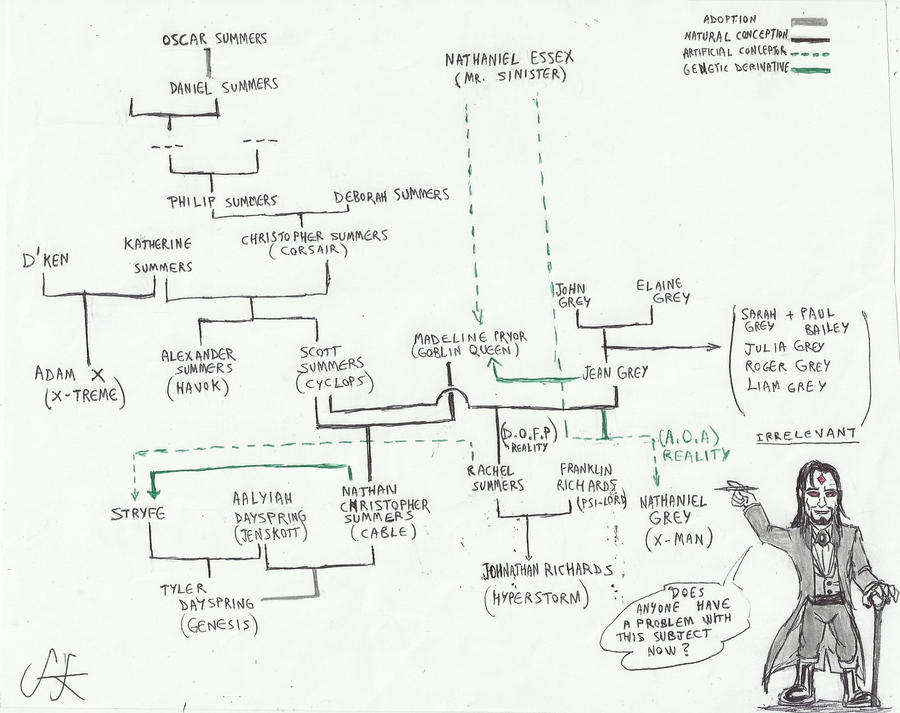 OSCAR SUMMERS
DANIEL SUMMERS
PHILIP SUMMERS
DEBORAH SUMMERS
CHRISTOPHER SUMMERS
(CORSAIR)
D'KEN
KATHERINE
SUMMERS
ADAM X
(X-TREME)
ALEXANDER
SUMMERS
(HAVOK)
SCOTT
SUMMERS
(CYCLOPS)
NATHANIEL ESSEX
(MR. SINISTER)
ADOPTION
NATURAL CONCEPTION
ARTIFICIAL CONCEPTION
GENETIC DERIVATIVE
MADELINE PRYOR
(GOBLIN QUEEN)
JOHN
GREY
ELAINE
GREY
JEAN GREY
SARAH + PAUL
GREY BAILEY
JULIA GREY
ROGER GREY
LIAM GREY
IRRELEVANT
(D.O.F.P)
REALITY
(A.O.A)
REALITY
STRYFE
AALYIAH
DAYSPRING
(JENSKOTT)
NATHAN
CHRISTOPHER
SUMMERS
(CABLE)
RACHEL
SUMMERS
FRANKLIN
RICHARDS
(PSI-LORD)
NATHANIEL
GREY
(X-MAN)
TYLER
DAYSPRING
(GENESIS)
JOHNATHAN RICHARDS
(HYPERSTORM)
DOES
ANYONE HAVE
A PROBLEM WITH
THIS SUBJECT
NOW?